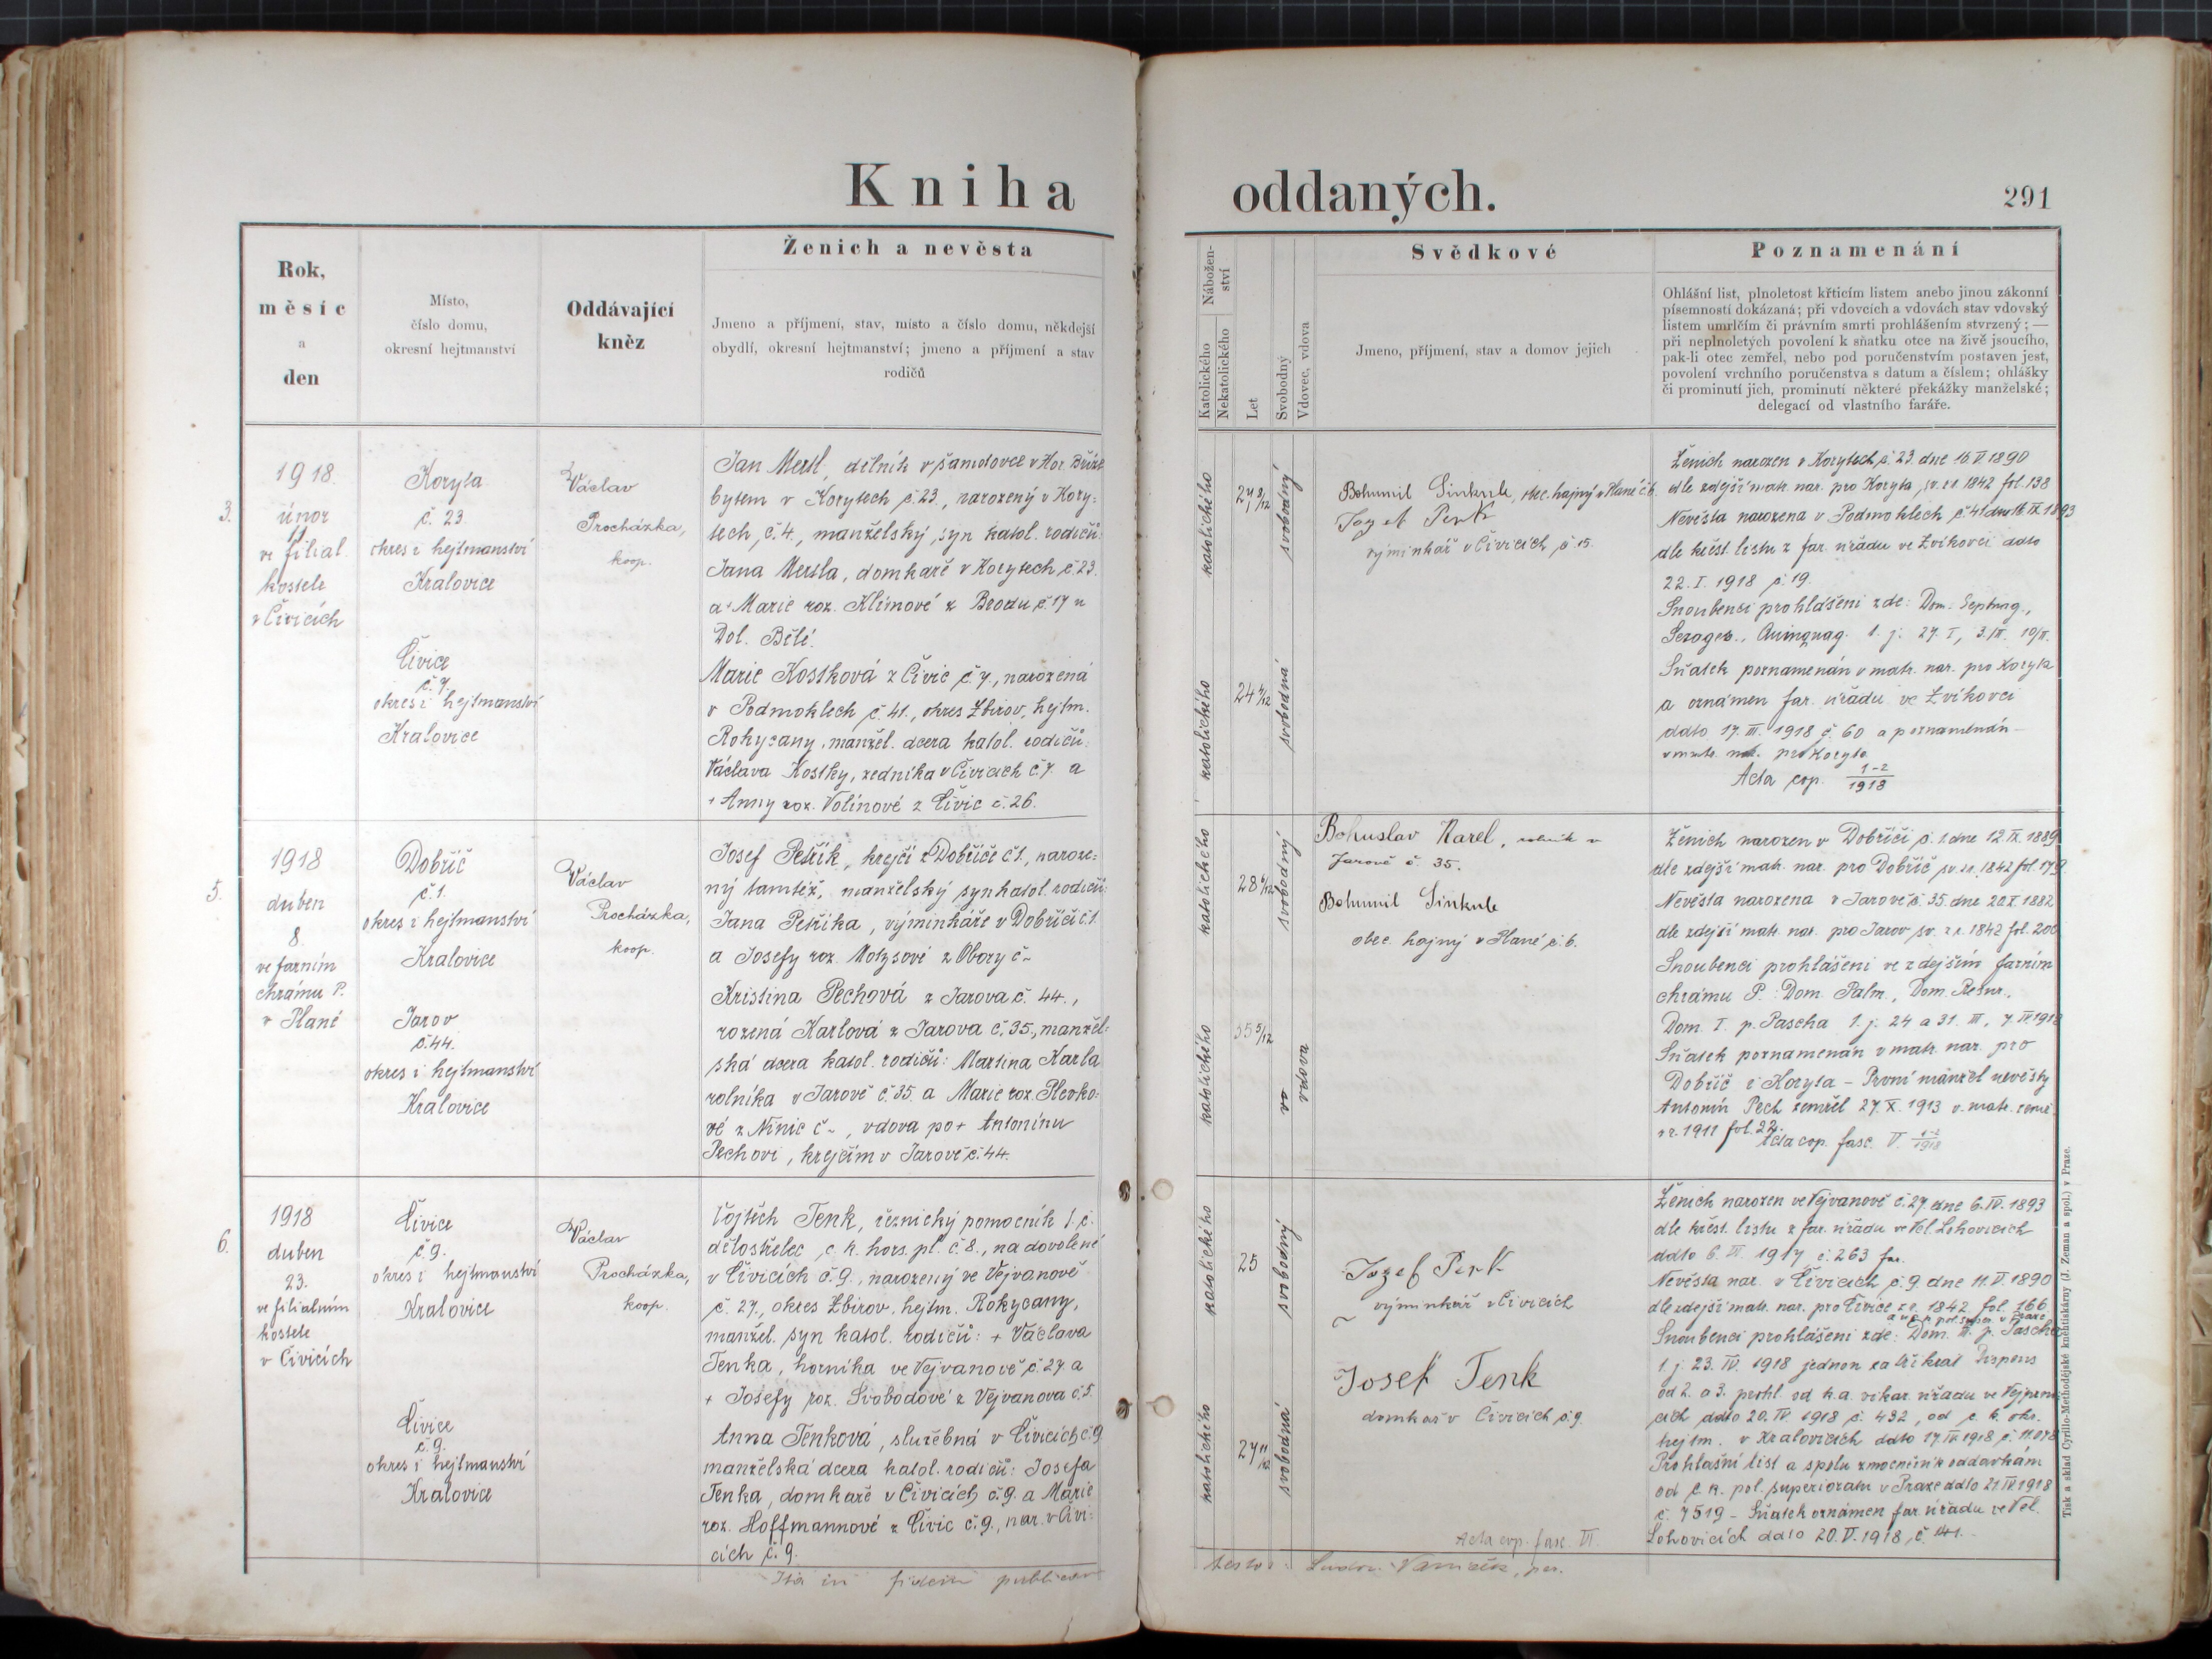 Kniha oddaných.
291
Rok,
měsíc
a
den
Místo,
číslo domu,
okresní hejtmanství
Oddávající
kněz
Ženich a nevěsta
Jmeno a příjmení, stav, místo a číslo domu, někdejší
obydlí, okresní hejtmanství; jmeno a příjmení a stav
rodičů
Nábožen-
ství
Katolického
Nekatolického
Let
Svobodný
Vdovec, vdova
Svědkové
Jmeno, příjmení, stav a domov jejich
Poznamenání
Ohlášní list, plnoletost křticím listem anebo jinou zákonní
písemností dokázaná; při vdovcích a vdovách stav vdovský
listem umrlčím či právním smrti prohlášením stvrzený; —
při neplnoletých povolení k sňatku otce na živě jsoucího,
pak-li otec zemřel, nebo pod poručenstvím postaven jest,
povolení vrchního poručenstva s datum a číslem; ohlášky
či prominutí jich, prominutí některé překážky manželské;
delegací od vlastního faráře.
3.
1918.
únor
11
ve filial.
kostele
v Čivicích
Koryta
č. 23
okres i hejtmanství
Kralovice
Čivice
č. 7.
okres i hejtmanství
Kralovice
Václav
Procházka,
koop.
Jan Mertl, dělník v šamotovce v Hor. Bříze
bytem v Korytech č. 23, narozený v Kory:
tech, č. 4., manželský syn katol. rodičů:
Jana Mertla, domkaře v Korytech č. 23.
a + Marie roz. Klímové z Brodu č. 17 u
Dol. Bělé.
Marie Kostková z Čivic č. 7., narozená
v Podmoklech č. 41., okres Zbirov, hejtm.
Rokycany, manžel. dcera katol. rodičů:
Václava Kostky, zedníka v Čivicích č. 7. a
+ Anny roz. Volínové z Čivic č. 26.
katolického
katolického
27 9/12
24
svobodný
svobodná
Bohumil Sinkule, obec. hajný v Plané č. 6.
Jozef Penk
výminkář v Čivicích č. 15.
Ženich narozen v Korytech č. 23. dne 16. V. 1890
dle zdejší matr. nar. pro Koryta, sv. z r. 1842 fol. 138
Nevěsta narozena v Podmoklech č. 41 dne 16. IX. 1893
dle křest. listu z far. úřadu ve Zvíkovci ddto
22. I. 1918 č. 19.
Snoubenci prohlášeni zde: Dom. Septuag.,
Sexages., Quinquag. t. j. 27. I, 3./II. 10/II.
Sňatek poznamenán v matr. nar. pro Koryta
a oznámen far. úřadu ve Zvíkovci
ddto 17. III. 1918 č. 60 a poznamenán
v matr. nar. pro Koryta.
Acta cop. 1-2/1918
5.
1918
duben
8.
ve farním
chrámu P.
v Plané
Dobříč
č. 1.
okres i hejtmanství
Kralovice
Jarov
č. 44.
okres i hejtmanství
Kralovice
Václav
Procházka,
koop.
Josef Petřík, krejčí z Dobříče č 1., naroze:
ný tamtéž, manželský syn katol. rodičů:
Jana Petříka, výminkáře v Dobříči č. 1.
a Josefy roz. Motysové z Obory č ~
Kristina Pechová z Jarova č. 44.,
rozená Karlová z Jarova č. 35., manžel:
ská dcera katol. rodičů: Martina Karla
rolníka v Jarově č. 35. a Marie roz. Plevko:
vé z Ninic č ~, vdova po + Antonínu
Pechovi, krejčím v Jarově č. 44.
katolického
katolického
28 6/12
35 5/12
svobodný
vdova
Bohuslav Karel, rolník v
Jarově č. 35.
Bohumil Sinkule
obec. hajný v Plané č. 6.
Ženich narozen v Dobříči č. 1. dne 12. IX. 1889
dle zdejší matr. nar. pro Dobříč sv. z r. 1842 fol. 179.
Nevěsta narozena v Jarově č. 35. dne 20. X. 1882
dle zdejší matr. nar. pro Jarov sv. z r. 1842 fol. 200
Snoubenci prohlášeni ve zdejším farním
chrámu P.: Dom. Palm., Dom. Resur.,
Dom. I. p. Pascha t. j. 24 a 31. III., 7. IV. 1918
Sňatek poznamenán v matr. nar. pro
Dobříč i Koryta – První manžel nevěsty
Antonín Pech zemřel 27. X. 1913 v. matr. zemř.
z r. 1911 fol. 22.
Acta cop. fasc. V. 1-2/1918
6.
1918
duben
23.
ve filialním
kostele
v Čivicích
Čivice
č. 9.
okres i hejtmanství
Kralovice
Čivice
č. 9.
okres i hejtmanství
Kralovice
Václav
Procházka,
koop.
Vojtěch Tenk, řeznický pomocník t. č.
dělostřelec c. k. hors. pl. č. 8., na dovolené
v Čivicích č. 9., narozený ve Vejvanově
č. 27., okres Zbirov, hejtm. Rokycany,
manžel. syn katol. rodičů: + Václava
Tenka, horníka ve Vejvanově č. 27 a
+ Josefy roz. Svobodové z Vejvanova č. 5.
Anna Tenková, služebná v Čivicích č. 9
manželská dcera katol. rodičů: Josefa
Tenka, domkaře v Čivicích č. 9. a Marie
roz. Hoffmannové z Čivic č. 9., nar. v Čivi:
cích č. 9.
katolického
katolického
25
27 11/12
svobodný
svobodná
Jozef Penk
výminkář v Čivicích
Josef Tenk
domkař v Čivicích č. 9.
Acta cop. fasc. VI.
Ženich narozen ve Vejvanově č. 27. dne 6. IV. 1893
dle křest. listu z far. úřadu ve Vel. Lohovicích
ddto 6. III. 1917 č. 263 far.
Nevěsta nar. v Čivicích č. 9. dne 11. V. 1890
dle zdejší matr. nar. pro Čivice z r. 1842. fol. 166.
a u c. k. pol. super. v Praze
Snoubenci prohlášeni zde: Dom. III. p. Pascha
t. j. 23. IV. 1918 jednou za třikrát Dispens
od 2. a 3. prohl. od k. a. vikar. úřadu ve Vejprni
cích ddto 20. IV. 1918 č. 432, od c. k. okr.
hejtm. v Kralovicích ddto 17. IV 1918 č. 11.078
Prohlašní list a spolu zmocnění k oddavkám
od c. k. pol. superioratu v Praze ddto 21. IV 1918
č. 7519 – Sňatek oznámen far. úřadu ve Vel.
Lohovicích ddto 20. V. 1918, č. 141.
Ita in fidem publicam
testor:
Tisk a sklad Cyrillo-Methodějské knihtiskárny (J. Zeman a spol.) v Praze.